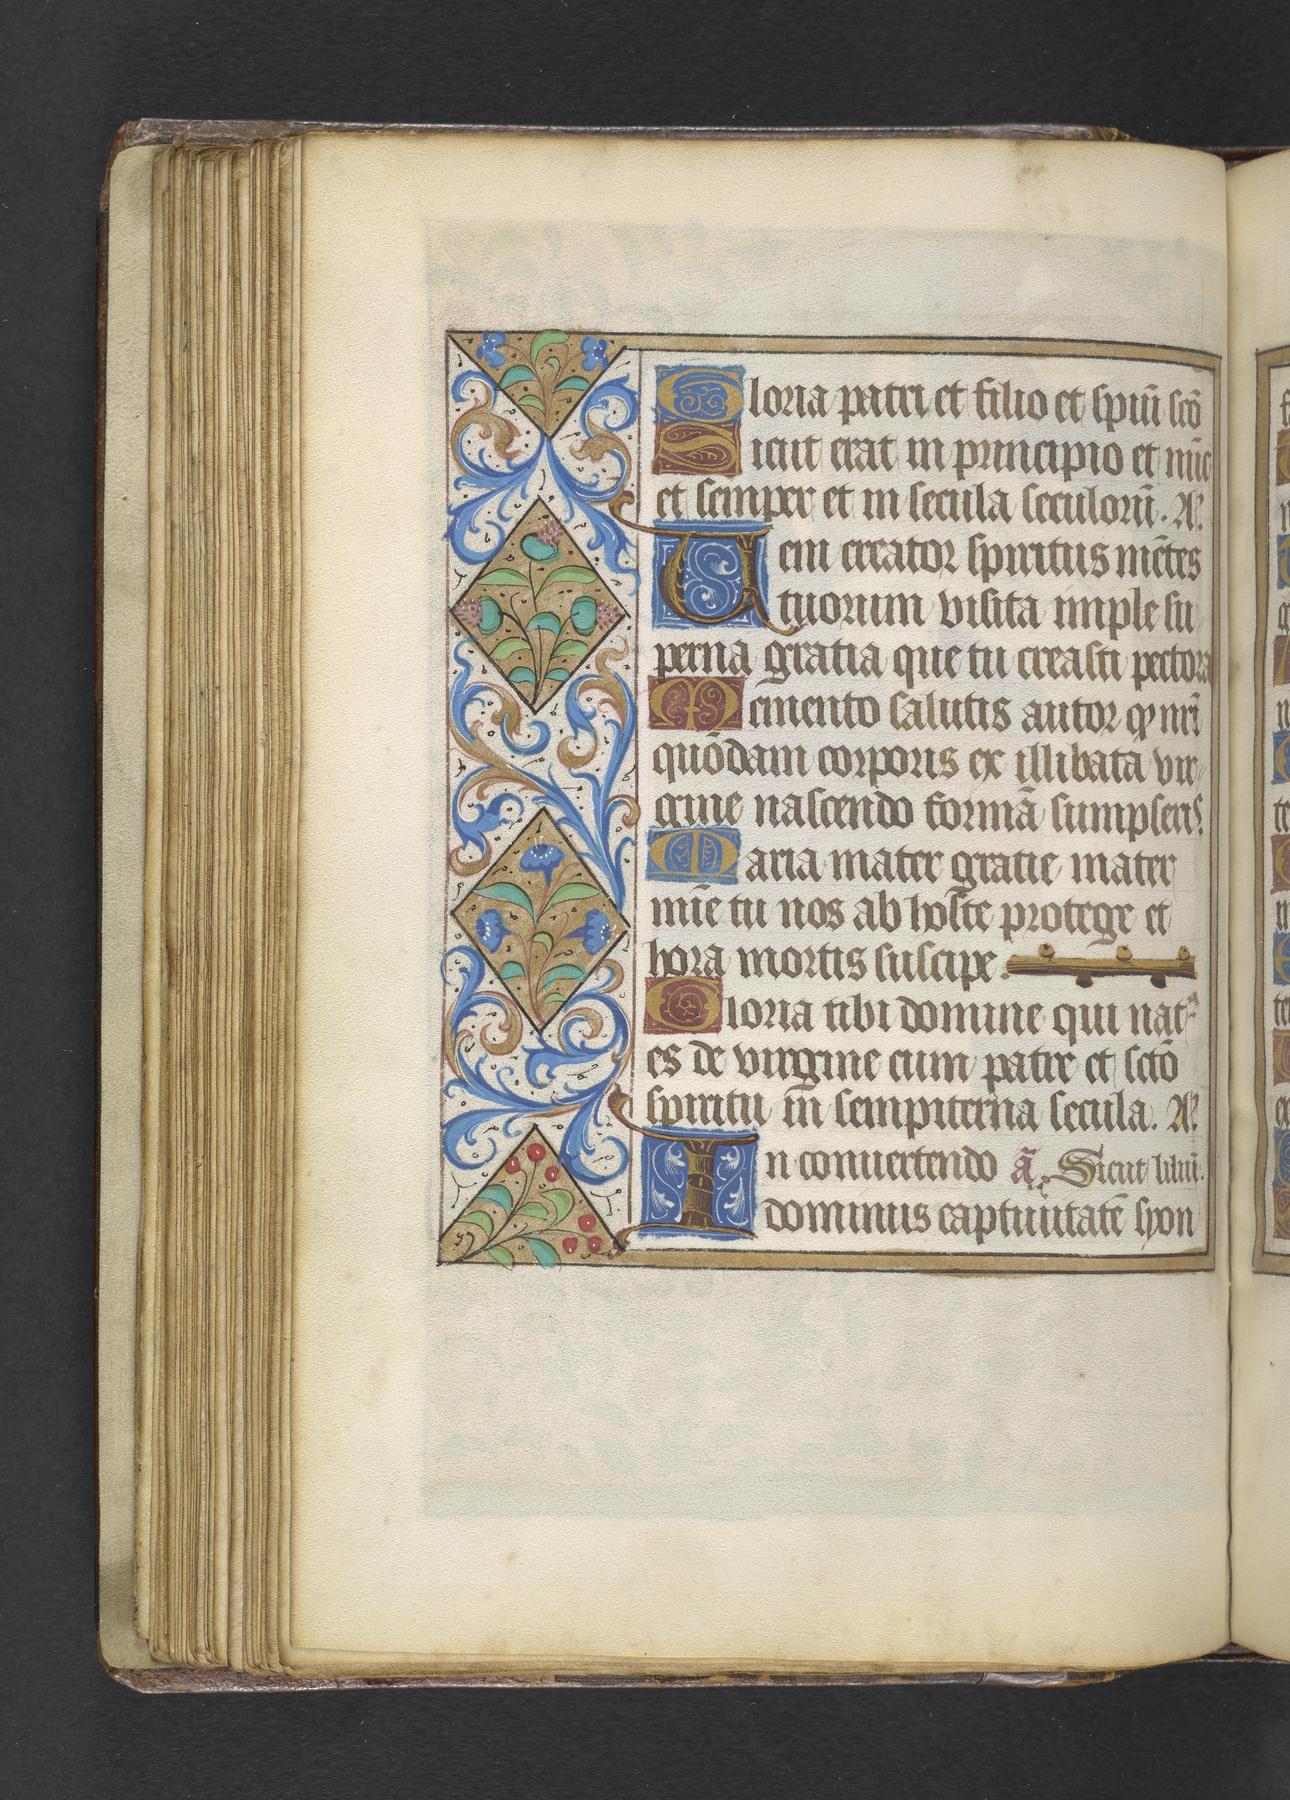 Gloria patri et filio et spiũ scõ
Sicut erat in principio et nũc
et semper et in secula seculorũ. A.
Ueni creator spiritus mẽtes
tuorum visita imple su
perna gratia que tu creasti pectora
Memento salutis autor qp nr̃i
quõdam corporis ex illibata vir
gine nascendo formã sumpseris.
Maria mater gratie mater
mĩe tu nos ab hoste protege et
hora mortis suscipe.
Gloria tibi domine qui nat9
es de virgine cum patre et sctõ
spiritu in sempiterna secula. A.
In conuertendo ã. Sicut liliũ.
dominus captiuitatẽ syon